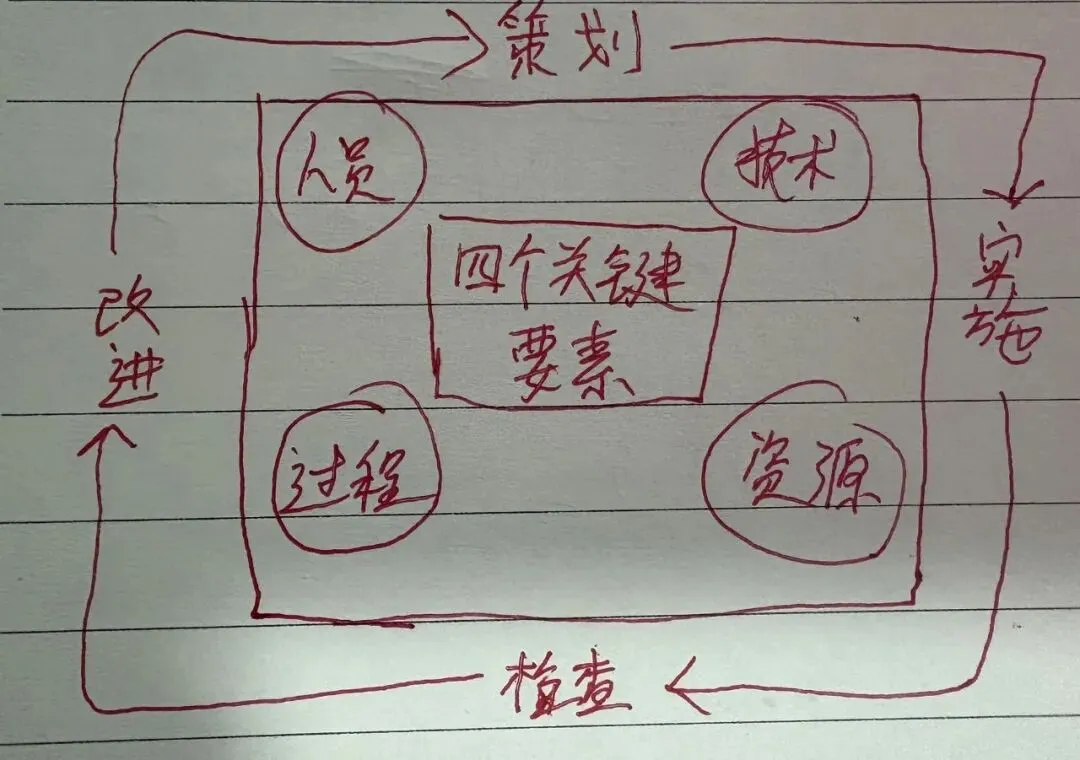 策划
人员
技术
四个关键
要素
改进
实施
过程
资源
检查